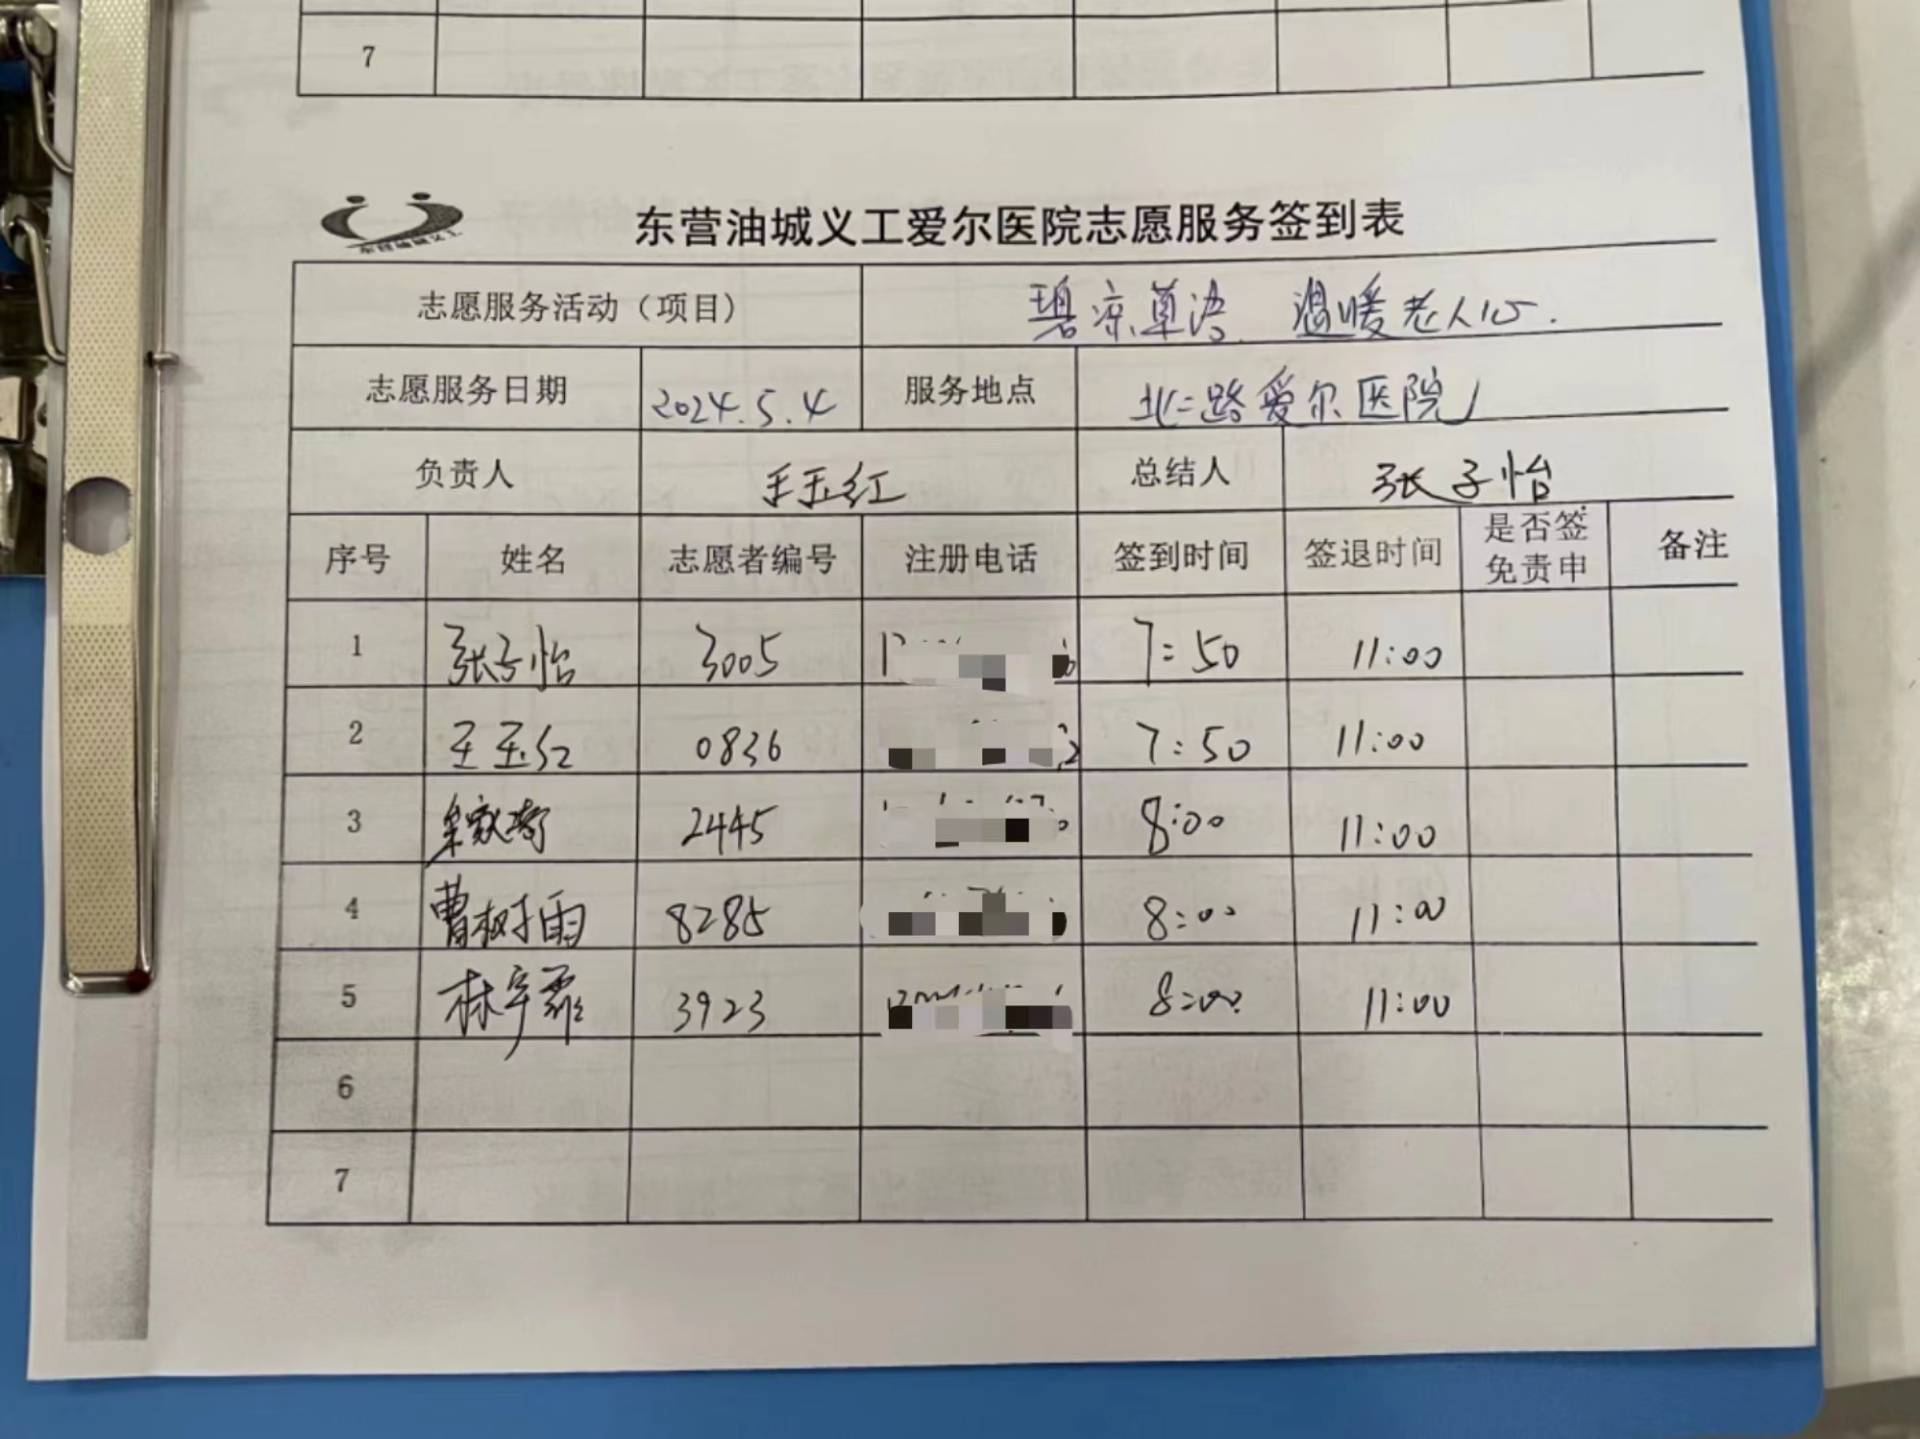 7
东营油城义工
东营油城义工爱尔医院志愿服务签到表
志愿服务活动（项目） 碧凉草语 温暖老人心.
志愿服务日期 2024.5.4 服务地点 北二路爱尔医院
负责人 王玉红 总结人 张子怡
序号 姓名 志愿者编号 注册电话 签到时间 签退时间 是否签免责申 备注
1 张子怡 3005 7:50 11:00
2 王玉红 0836 7:50 11:00
3 2445 8:00 11:00
4 曹树雨 8285 8:00 11:00
5 林宇霏 3923 8:00 11:00
6
7